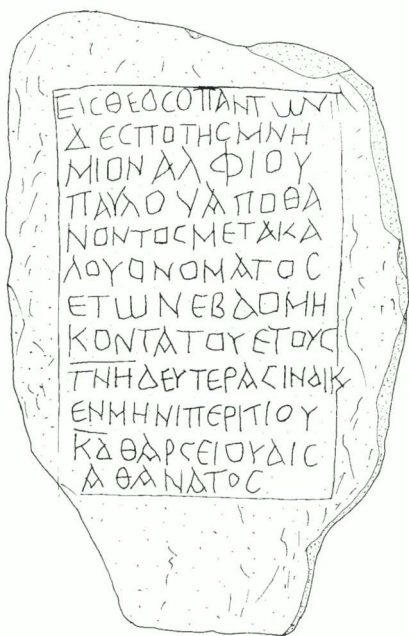 ΕΙϹΘΕΟϹΟΠΑΝΤΩΝ
ΔΕϹΠΟΤΗϹΜΝΗ
ΜΙΟΝΑΛΦΙΟΥ
ΠΑΥΛΟΥΑΠΟΘΑ
ΝΟΝΤΟϹΜΕΤΑΚΑ
ΛΟΥΟΝΟΜΑΤΟϹ
ΕΤΩΝΕΒΔΟΜΗ
ΚΟΝΤΑΤΟΥΕΤΟΥϹ
ΤΝΗΔΕΥΤΕΡΑϹΙΝΔΙΚ
ΕΝΜΗΝΙΠΕΡΙΤΙΟΥ
ΚΔΘΑΡϹΕΙΟΥΔΙϹ
ΑΘΑΝΑΤΟϹ